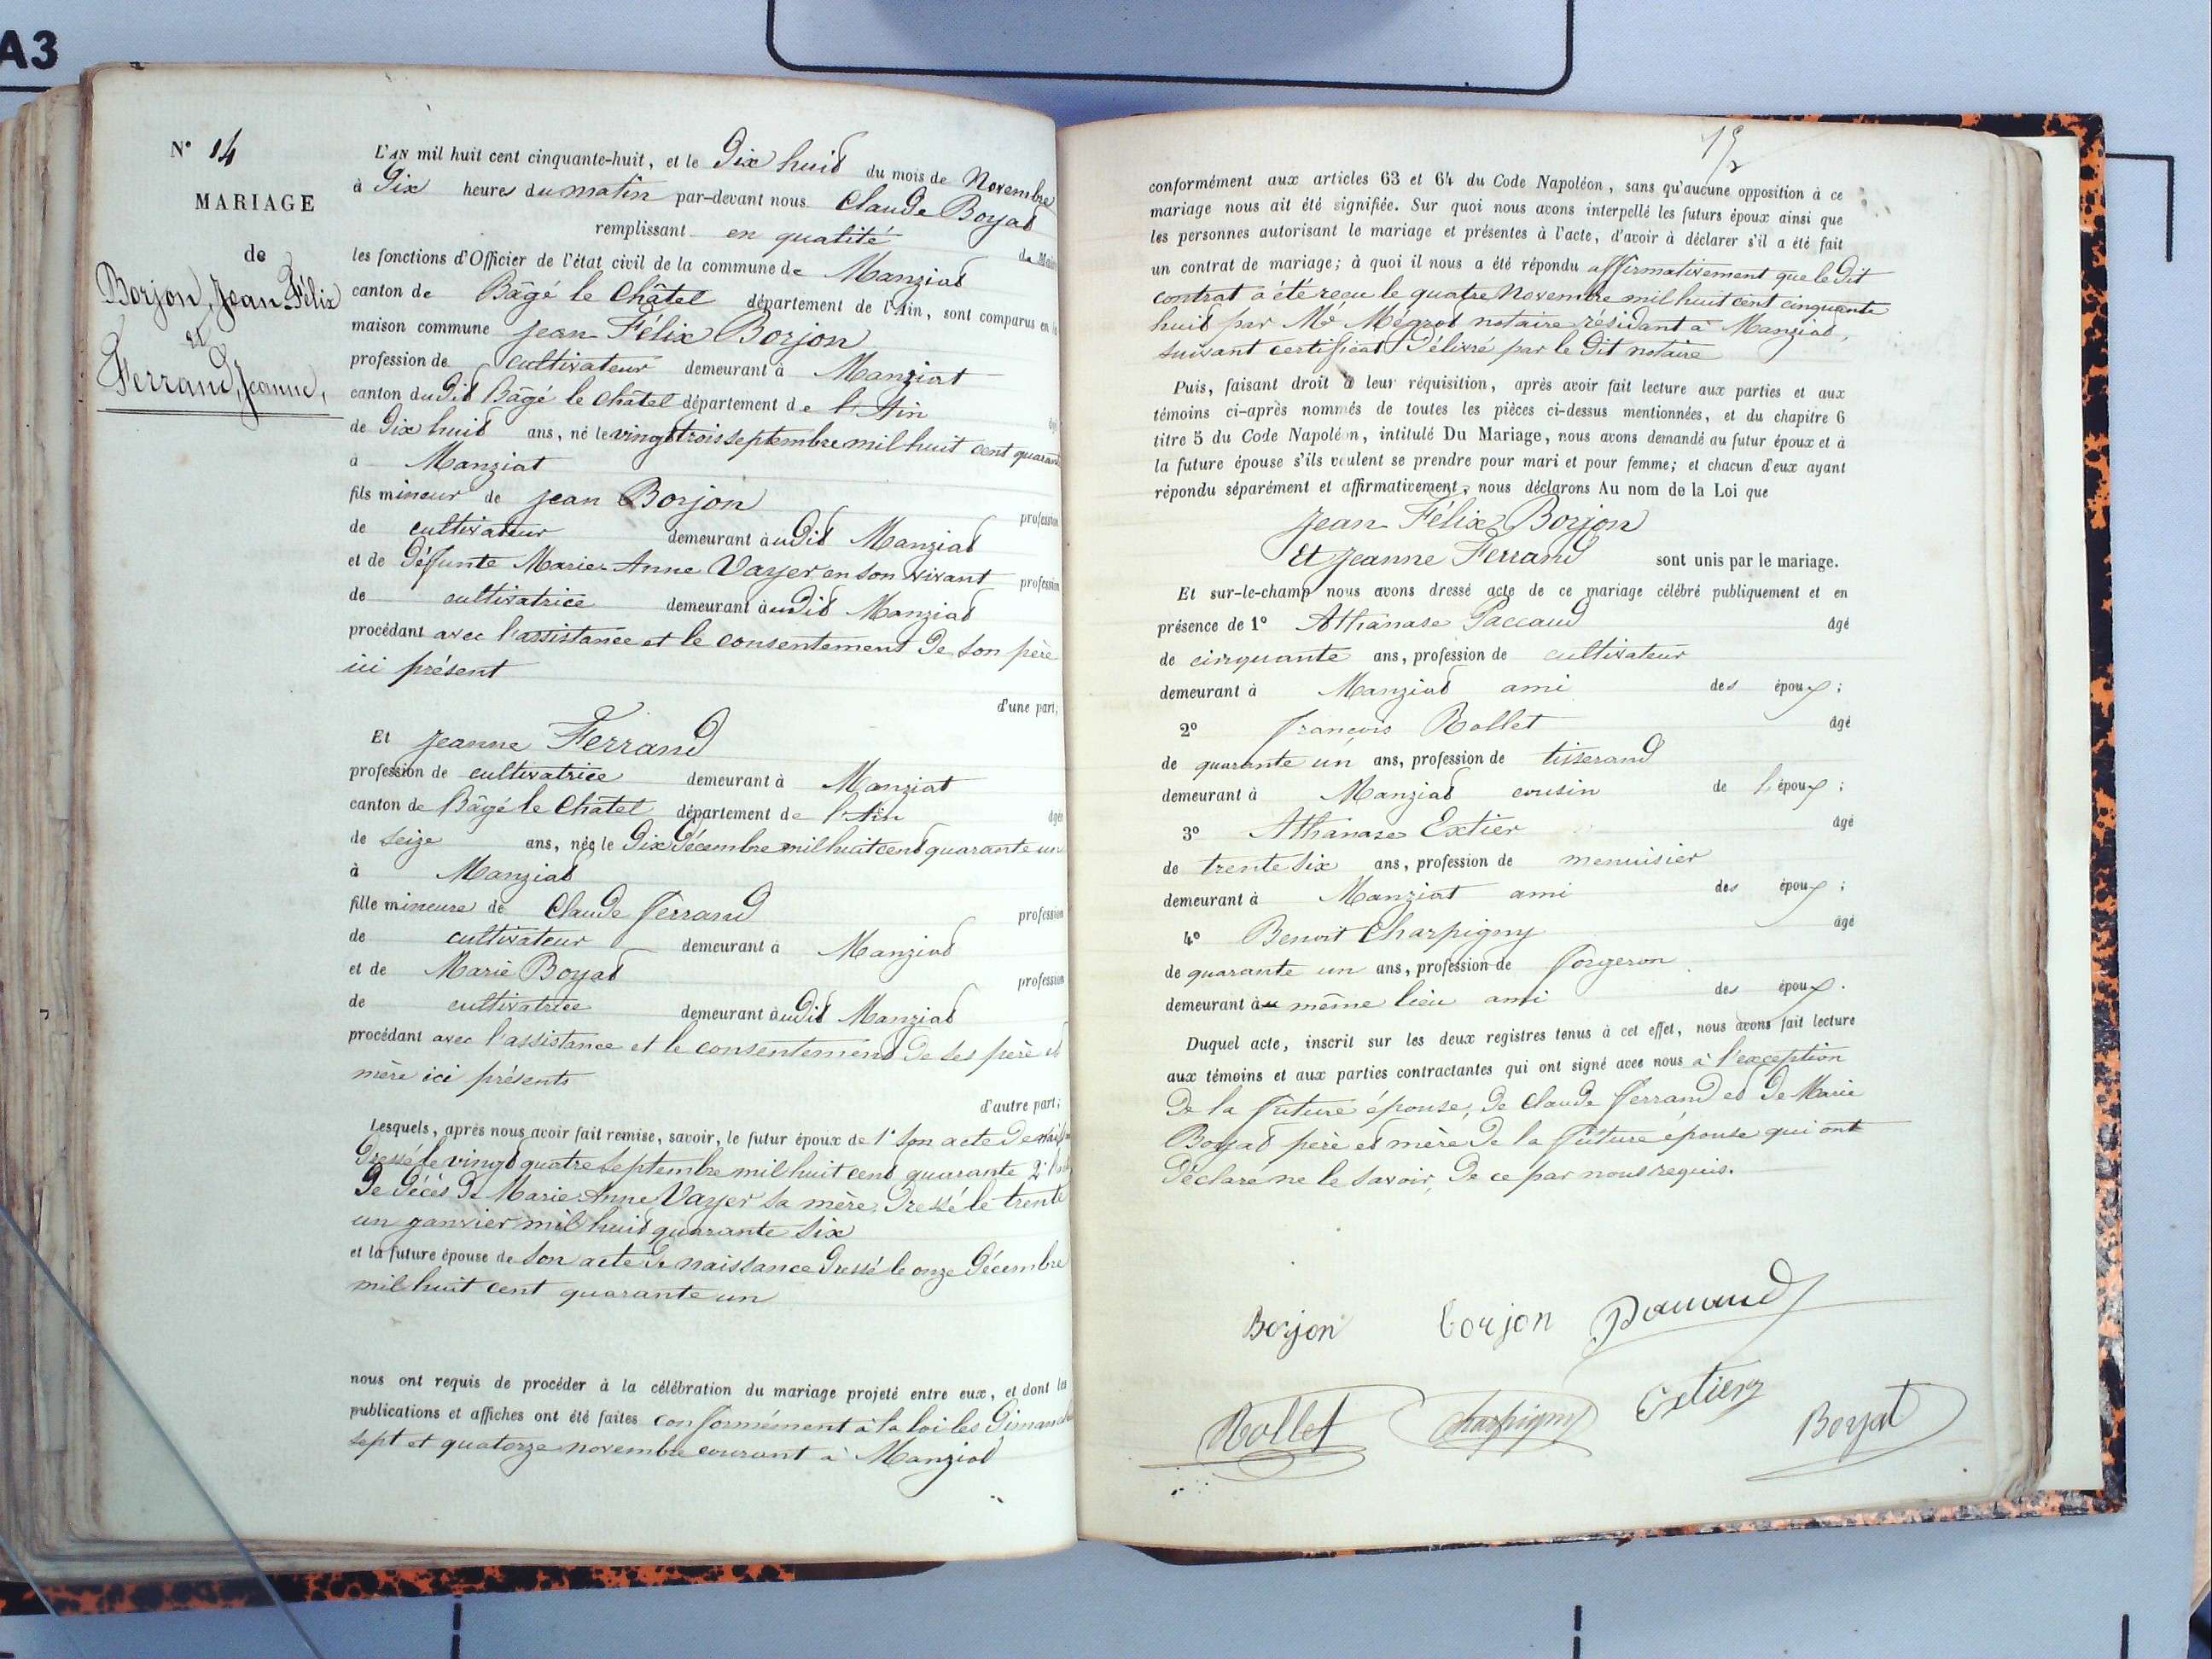 A3
N° 14
MARIAGE
de
Borjon, Jean Félix
et
Ferrand, Jeanne,
L'AN mil huit cent cinquante-huit, et le Dix huit du mois de Novembre
à Dix heures du matin par-devant nous Claude Boyat
remplissant en qualité de Maire
les fonctions d'Officier de l'état civil de la commune de Manziat
canton de Bâgé le Châtel département de l'Ain, sont comparus en la
maison commune Jean Félix Borjon
profession de cultivateur demeurant à Manziat
canton du dit Bâgé le Châtel département de l'Ain âgé
de Dix huit ans, né le vingt trois septembre mil huit cent quarante
à Manziat
fils mineur de Jean Borjon profession
de cultivateur demeurant audit Manziat
et de Défunte Marie-Anne Vayer en son vivant profession
de cultivatrice demeurant audit Manziat
procédant avec l'assistance et le consentement De son père
ici présent
d'une part;
Et Jeanne Ferrand
profession de cultivatrice demeurant à Manziat
canton de Bâgé le Châtel département de l'Ain âgée
de seize ans, née le Dix Décembre mil huit cent quarante un
à Manziat
fille mineure de Claude Ferrand profession
de cultivateur demeurant à Manziat
et de Marie Boyat profession
de cultivatrice demeurant audit Manziat
procédant avec l'assistance et le consentement De ses père et
mère ici présents
d'autre part;
Lesquels, après nous avoir fait remise, savoir, le futur époux de 1° son acte De
Dressé le vingt quatre Septembre mil huit cent quarante 2°
De Décès De Marie-Anne Vayer sa mère, Dressé le trente
un janvier mil huit quarante six
et la future épouse de son acte De naissance Dressé le onze Décembre
mil huit cent quarante un
nous ont requis de procéder à la célébration du mariage projeté entre eux, et dont les
publications et affiches ont été faites conformément à la loi les Dimanches
sept et quatorze novembre courant à Manziat
15
conformément aux articles 63 et 64 du Code Napoléon, sans qu'aucune opposition à ce
mariage nous ait été signifiée. Sur quoi nous avons interpellé les futurs époux ainsi que
les personnes autorisant le mariage et présentes à l'acte, d'avoir à déclarer s'il a été fait
un contrat de mariage; à quoi il nous a été répondu affirmativement que le Dit
contrat a été reçu le quatre Novembre mil huit cent cinquante
huit par Me Mégrot notaire résidant à Manziat,
suivant certificat Délivré par le Dit notaire
Puis, faisant droit à leur réquisition, après avoir fait lecture aux parties et aux
témoins ci-après nommés de toutes les pièces ci-dessus mentionnées, et du chapitre 6
titre 5 du Code Napoléon, intitulé Du Mariage, nous avons demandé au futur époux et à
la future épouse s'ils veulent se prendre pour mari et pour femme; et chacun d'eux ayant
répondu séparément et affirmativement, nous déclarons Au nom de la Loi que
Jean Félix Borjon
Et Jeanne Ferrand sont unis par le mariage.
Et sur-le-champ nous avons dressé acte de ce mariage célébré publiquement et en
présence de 1° Athanase Paccaud âgé
de cinquante ans, profession de cultivateur
demeurant à Manziat ami des époux;
2° François Rollet âgé
de quarante un ans, profession de tisserand
demeurant à Manziat cousin de l'époux;
3° Athanase Extier âgé
de trente six ans, profession de menuisier
demeurant à Manziat ami des époux;
4° Benoit Charpigny âgé
de quarante un ans, profession de forgeron
demeurant au même lieu ami des époux.
Duquel acte, inscrit sur les deux registres tenus à cet effet, nous avons fait lecture
aux témoins et aux parties contractantes qui ont signé avec nous à l'exception
De la future épouse, De Claude Ferrand et De Marie
Boyat père et mère De la future épouse qui ont
Déclaré ne le savoir, De ce par nous requis.
Borjon borjon Paccaud
Rollet Charpigny Extier Boyat